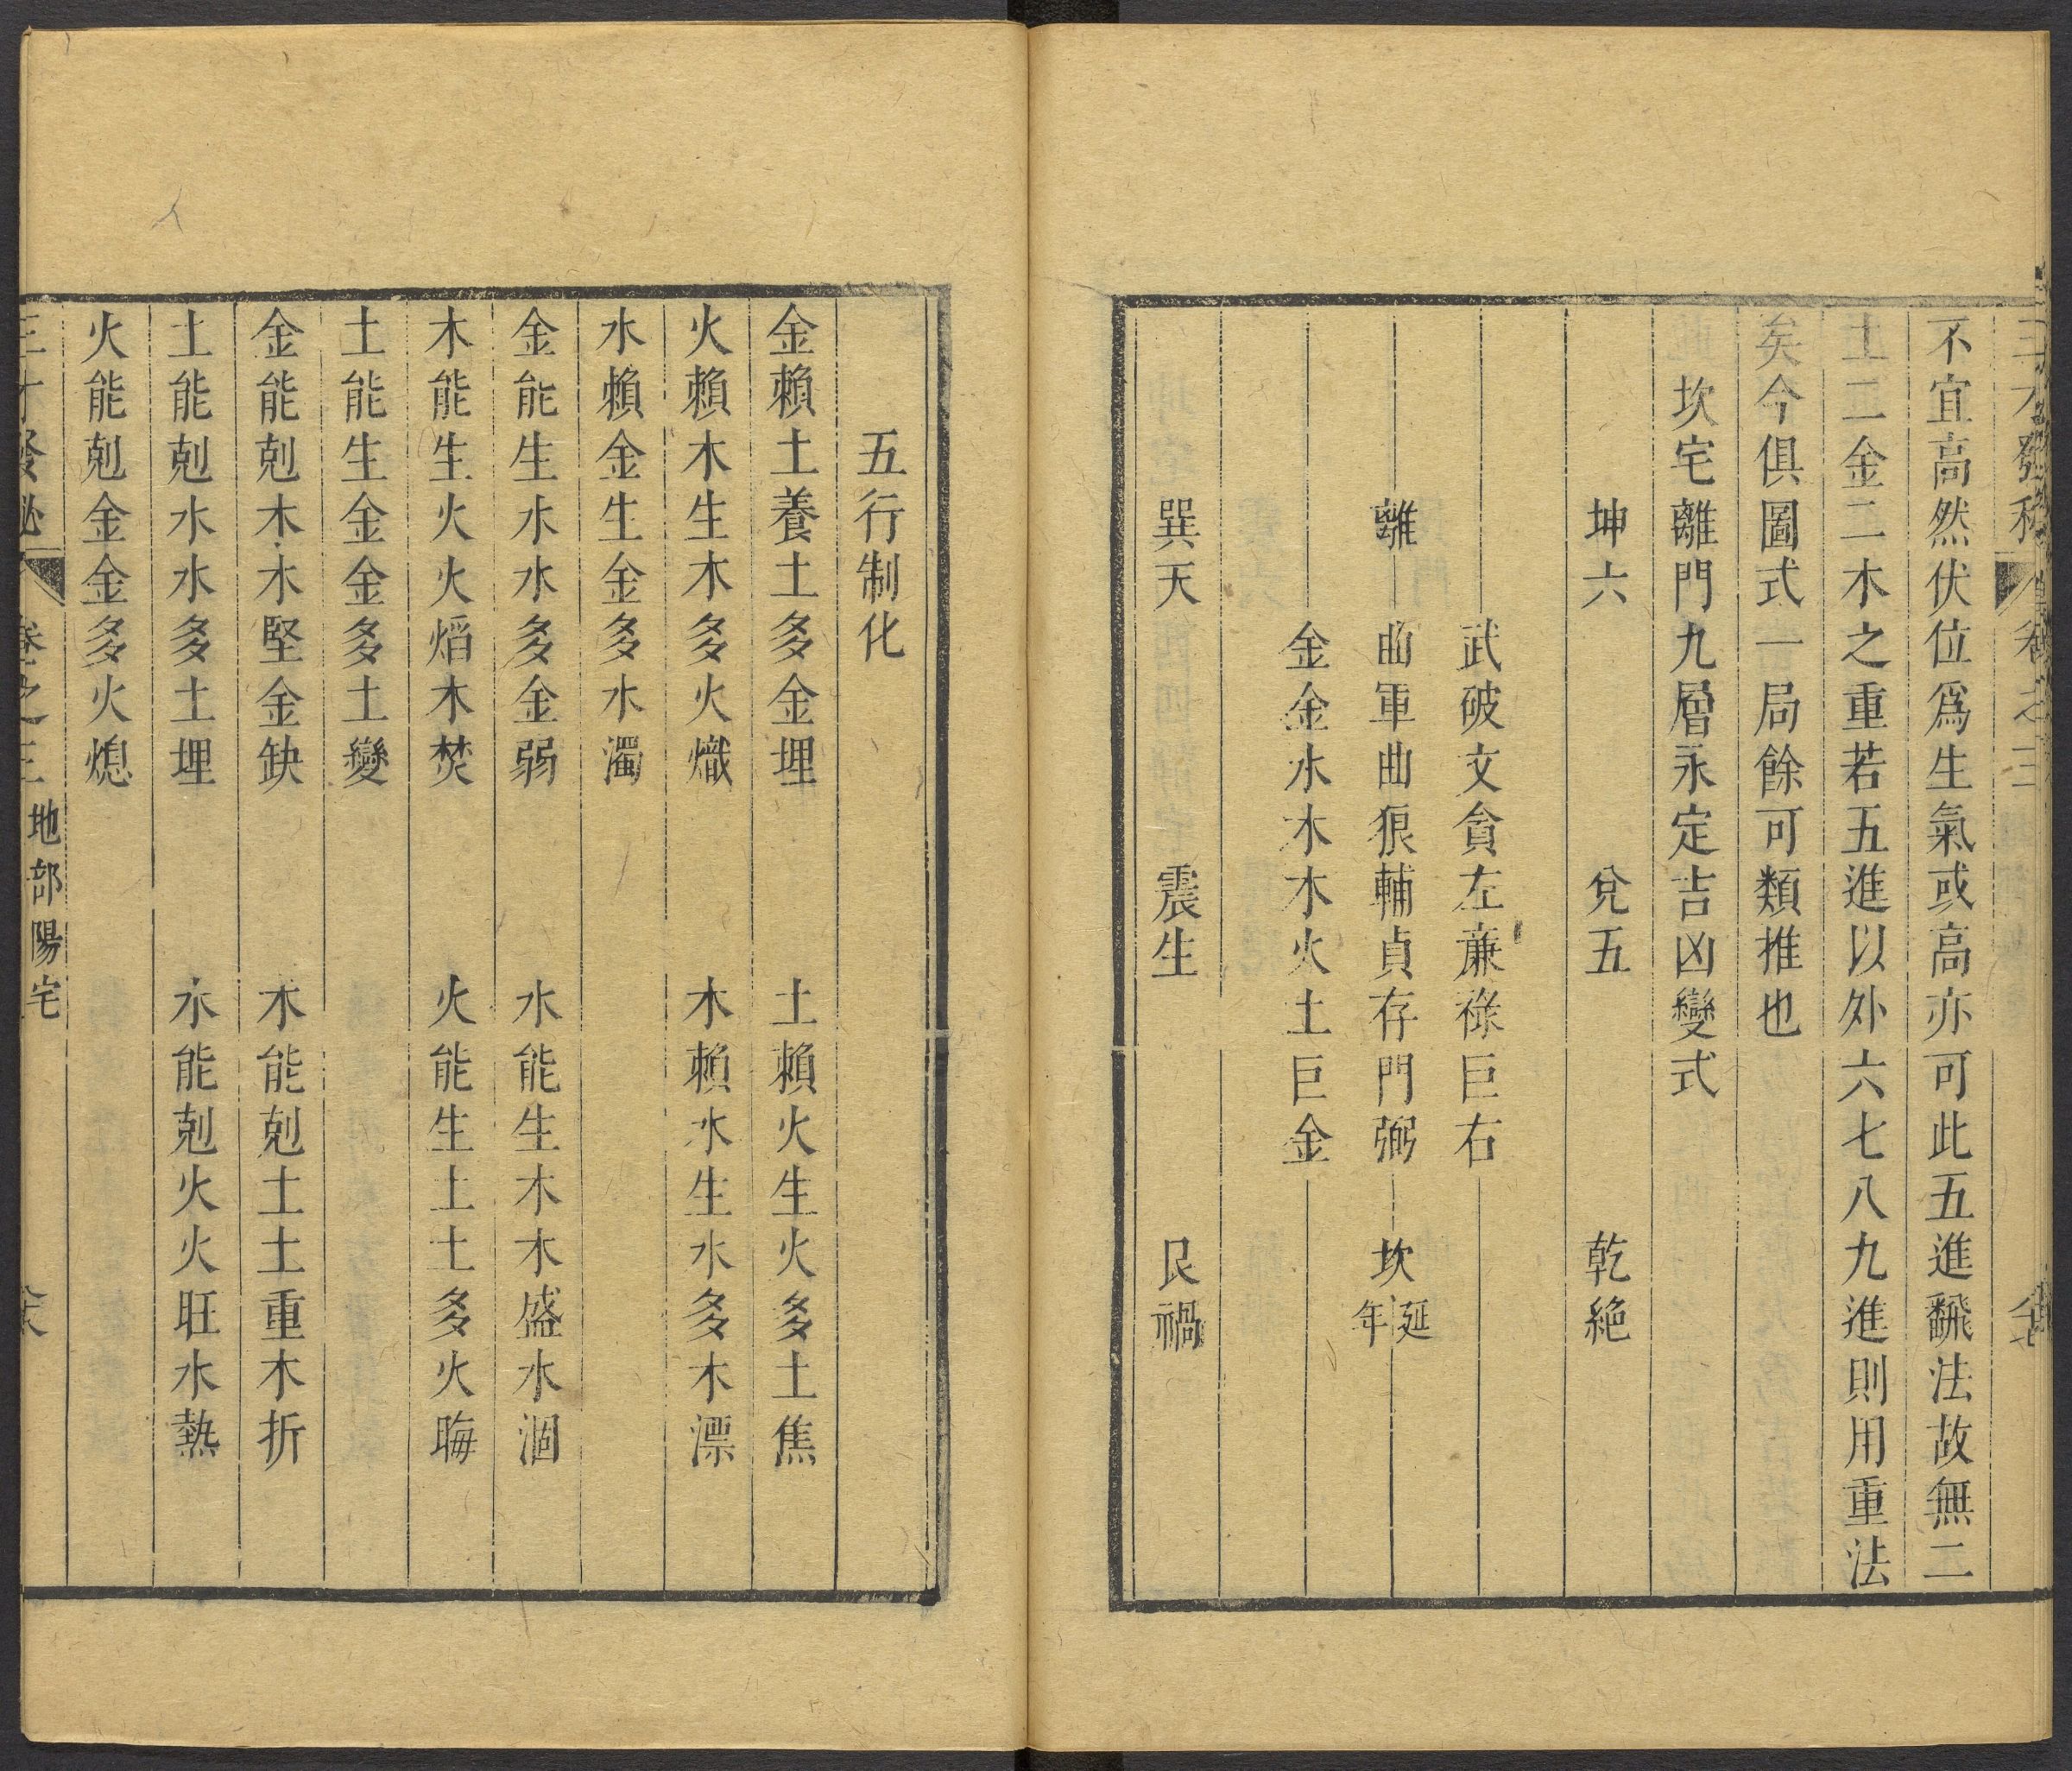 不宜高然伏位爲生氣或高亦可此五進飜法故無二
土二金二木之重若五進以外六七八九進則用重法
矣今俱圖式一局餘可類推也
坎宅離門九層永定吉凶變式
坤六　兌五　乾絶
武破文貪左廉祿巨右
離　曲軍曲狼輔貞存門弼　坎延年
金金水木木火土巨金
巽天　震生　艮禍
五行制化
金賴土養土多金埋　土賴火生火多土焦
火賴木生木多火熾　木賴水生水多木漂
水賴金生金多水濁
金能生水水多金弱　水能生木木盛水涸
木能生火火熖木焚　火能生土土多火晦
土能生金金多土變
金能剋木木堅金缺　木能剋土土重木折
土能剋水水多土埋　水能剋火火旺水熱
火能剋金金多火熄
三才發秘　卷之三　地部陽宅